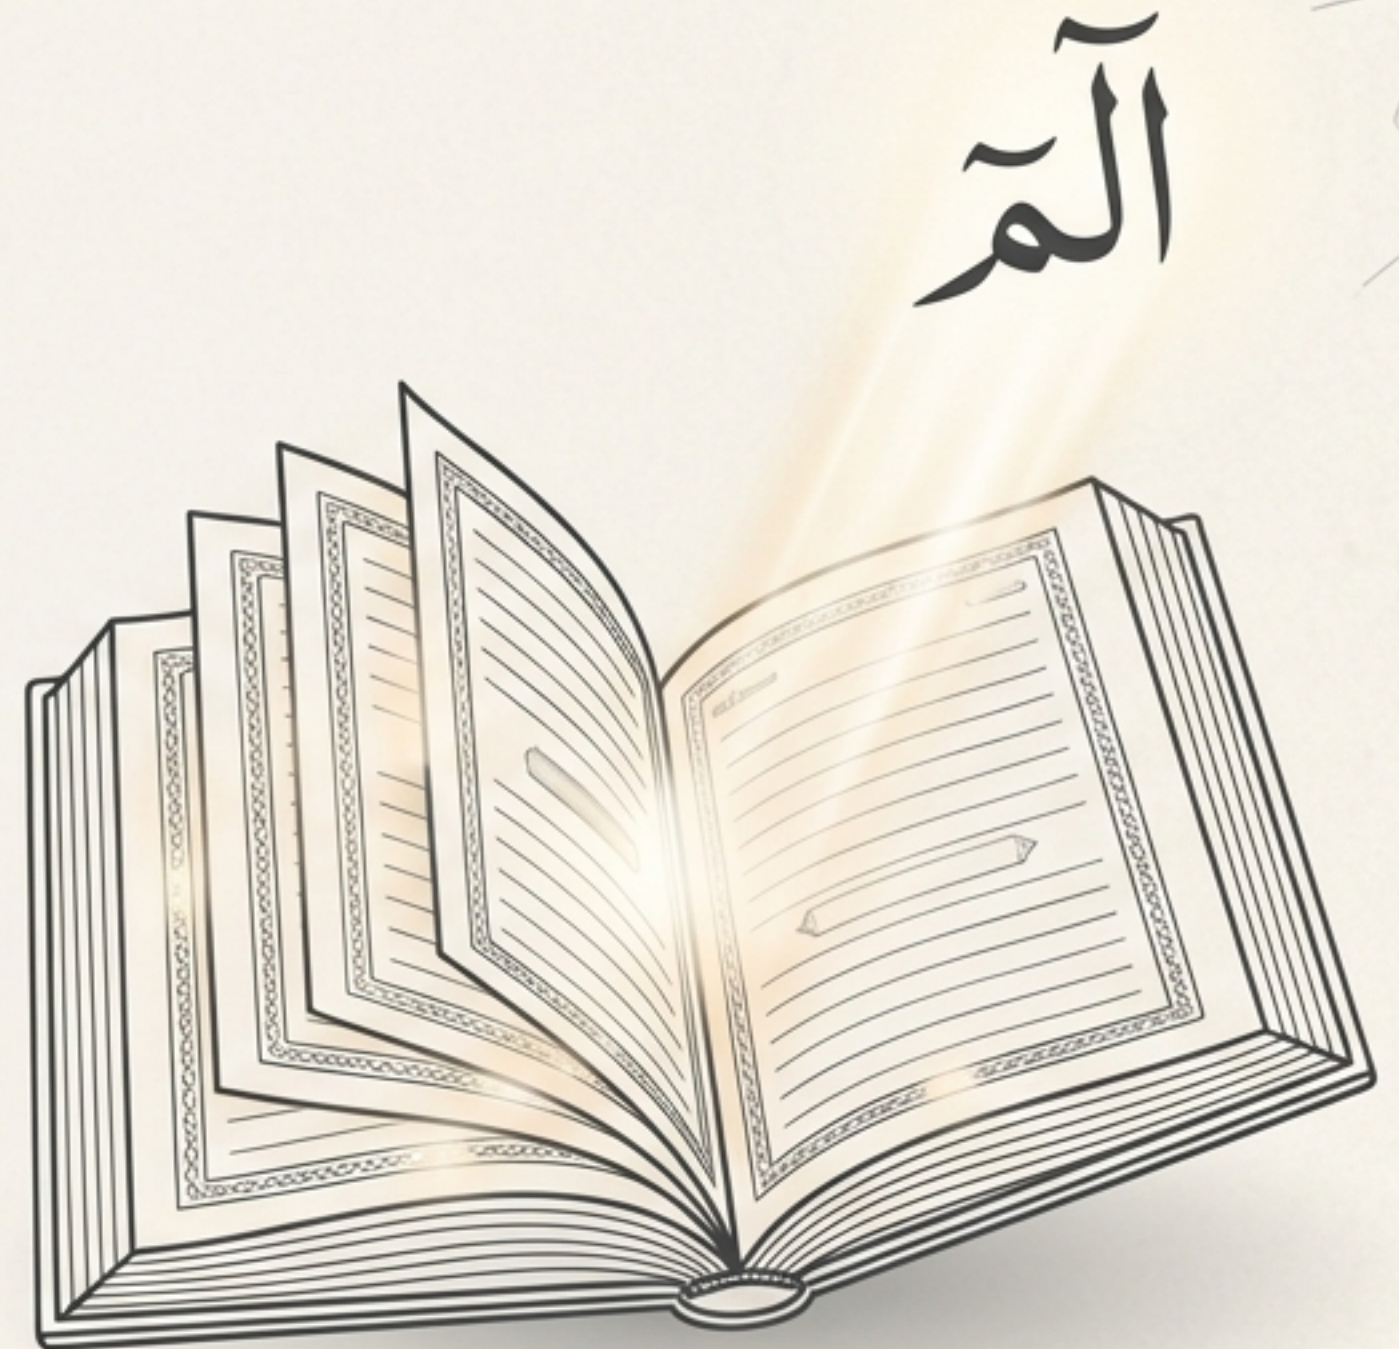 الٓمٓ